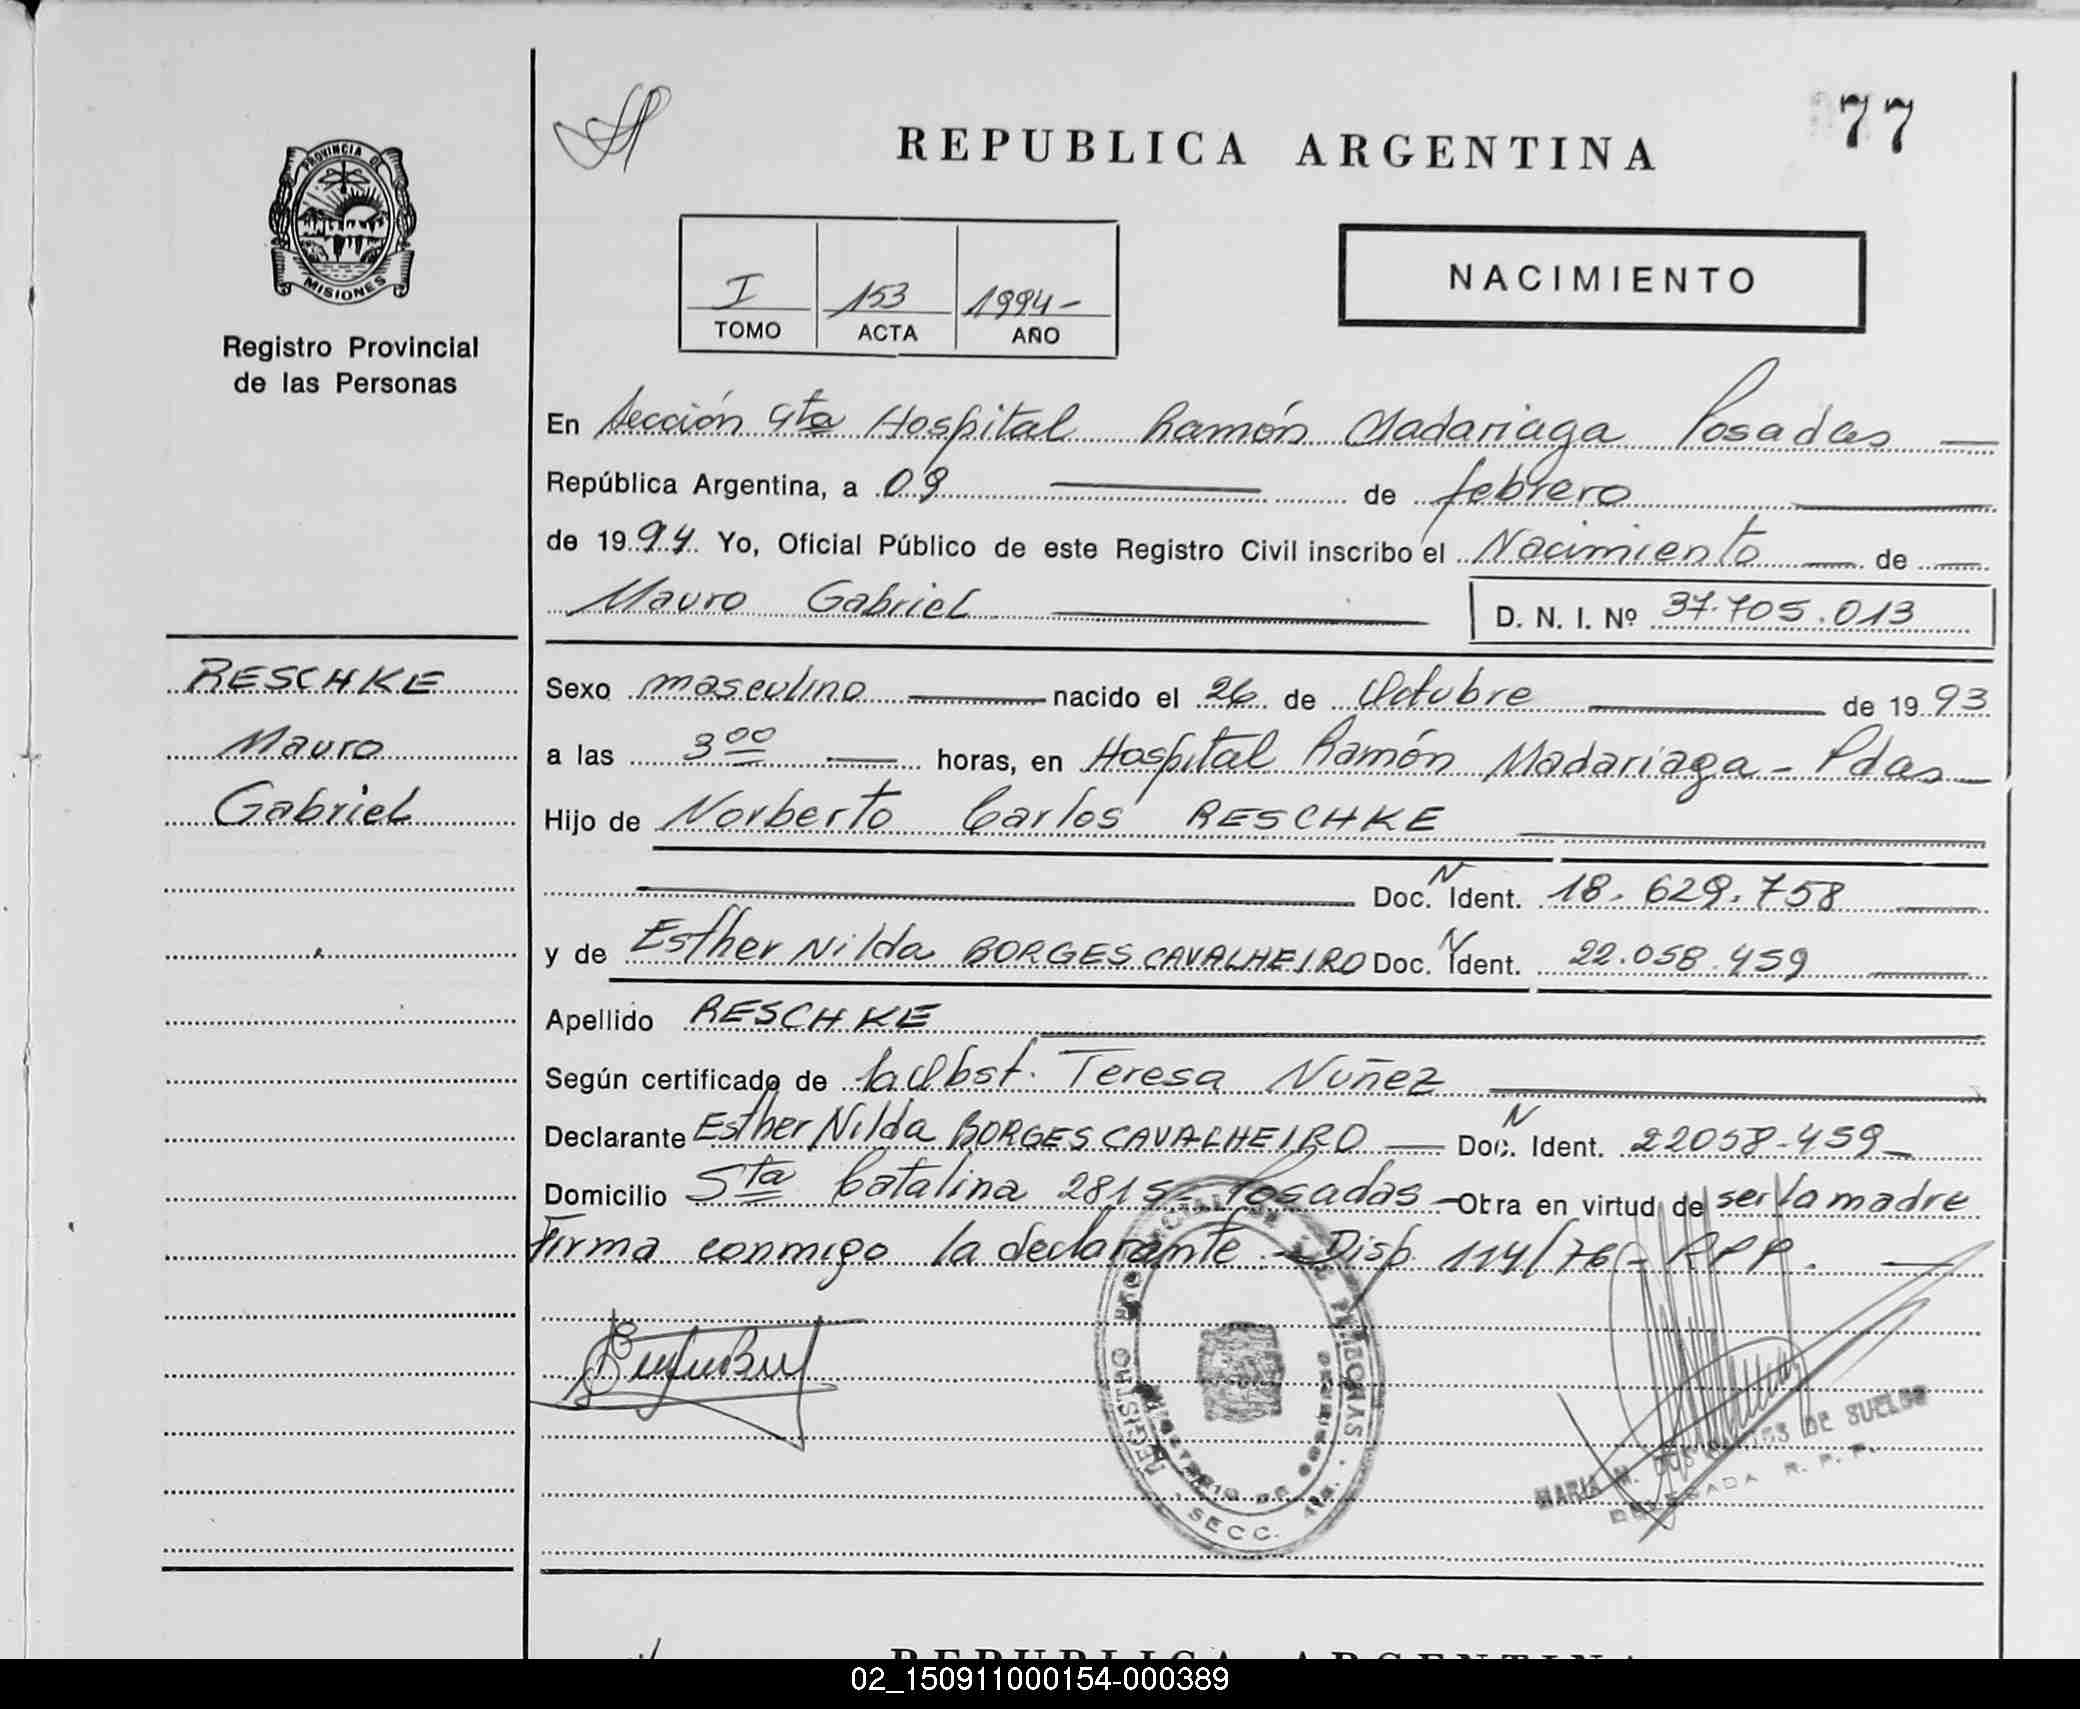 77
REPUBLICA ARGENTINA
PROVINCIA DE
MISIONES
Registro Provincial
de las Personas
I 153 1994-
TOMO ACTA AÑO
NACIMIENTO
En Sección 4ta Hospital Ramón Madariaga Posadas —
República Argentina, a 09 — de febrero —
de 1994. Yo, Oficial Público de este Registro Civil inscribo el Nacimiento — de —
Mauro Gabriel — D. N. I. Nº 37.705.013
RESCHKE
Mauro
Gabriel
Sexo masculino — nacido el 26 de Octubre — de 1993
a las 3 00 — horas, en Hospital Ramón Madariaga - Pdas —
Hijo de Norberto Carlos RESCHKE —
— Doc. N Ident. 18.629.758 —
y de Esther Nilda BORGES CAVALHEIRO Doc. N Ident. 22.058.459 —
Apellido RESCHKE —
Según certificado de la Obst. Teresa Nuñez —
Declarante Esther Nilda BORGES CAVALHEIRO — Doc. N Ident. 22058.459 —
Domicilio Sta Catalina 2815 - Posadas - Obra en virtud de ser la madre
Firma conmigo la declarante. - Disp. 114/76 - RPP. —
REGISTRO PERSONAS
SECC. 4ta.
MARIA M. DOS DE SUELOS
DELEGADA R. P. P.
REPUBLICA ARGENTINA
02_150911000154-000389